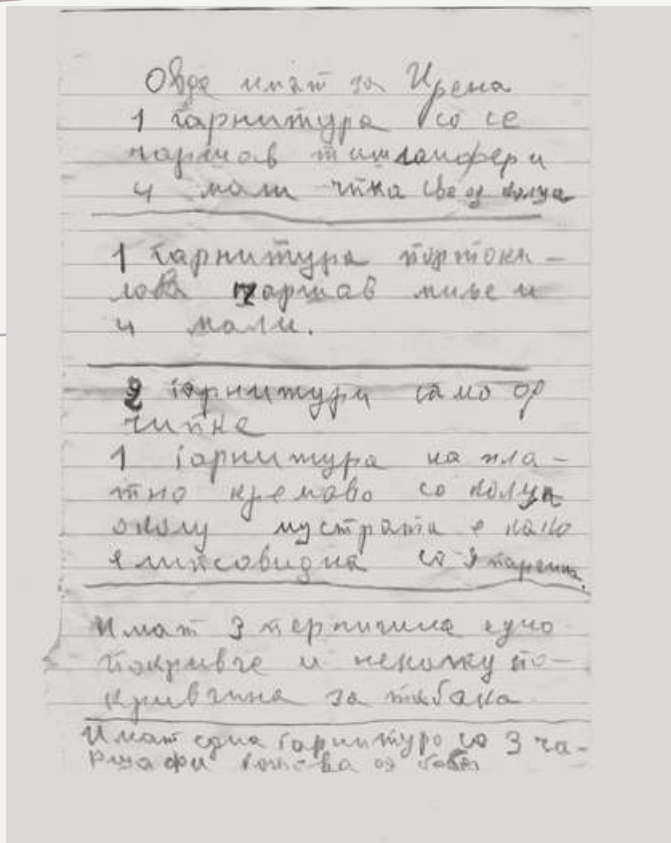 Овде имат за Ирена
1 гарнитура со се
чаршав тишлаифери
4 мали чипка све од конца
1 гарнитура портока-
лова чаршав миље и
4 мали.
2 гарнитури само од
чипке
1 гарнитура на пла-
тно кремаво со
околу мустрата е како
елипсовидна со 9 парчина.
Имат 3 перничина едно
покривче и неколку по-
кривчина за табака
Имат една гарнитуро со 3 ча-
ршафи од